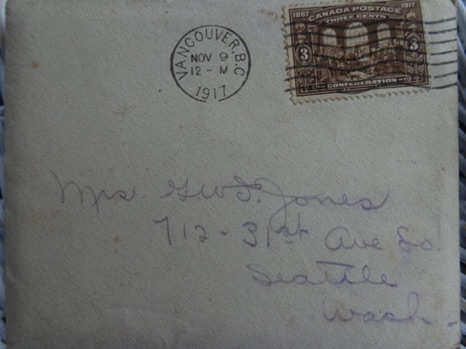 VANCOUVER, B.C.
NOV 9
12 - M
1917
1867 CANADA POSTAGE 1917
THREE CENTS
3 3
CONFEDERATION
Mrs. G.W.T. Jones
712 - 31st Ave So
Seattle
Wash.